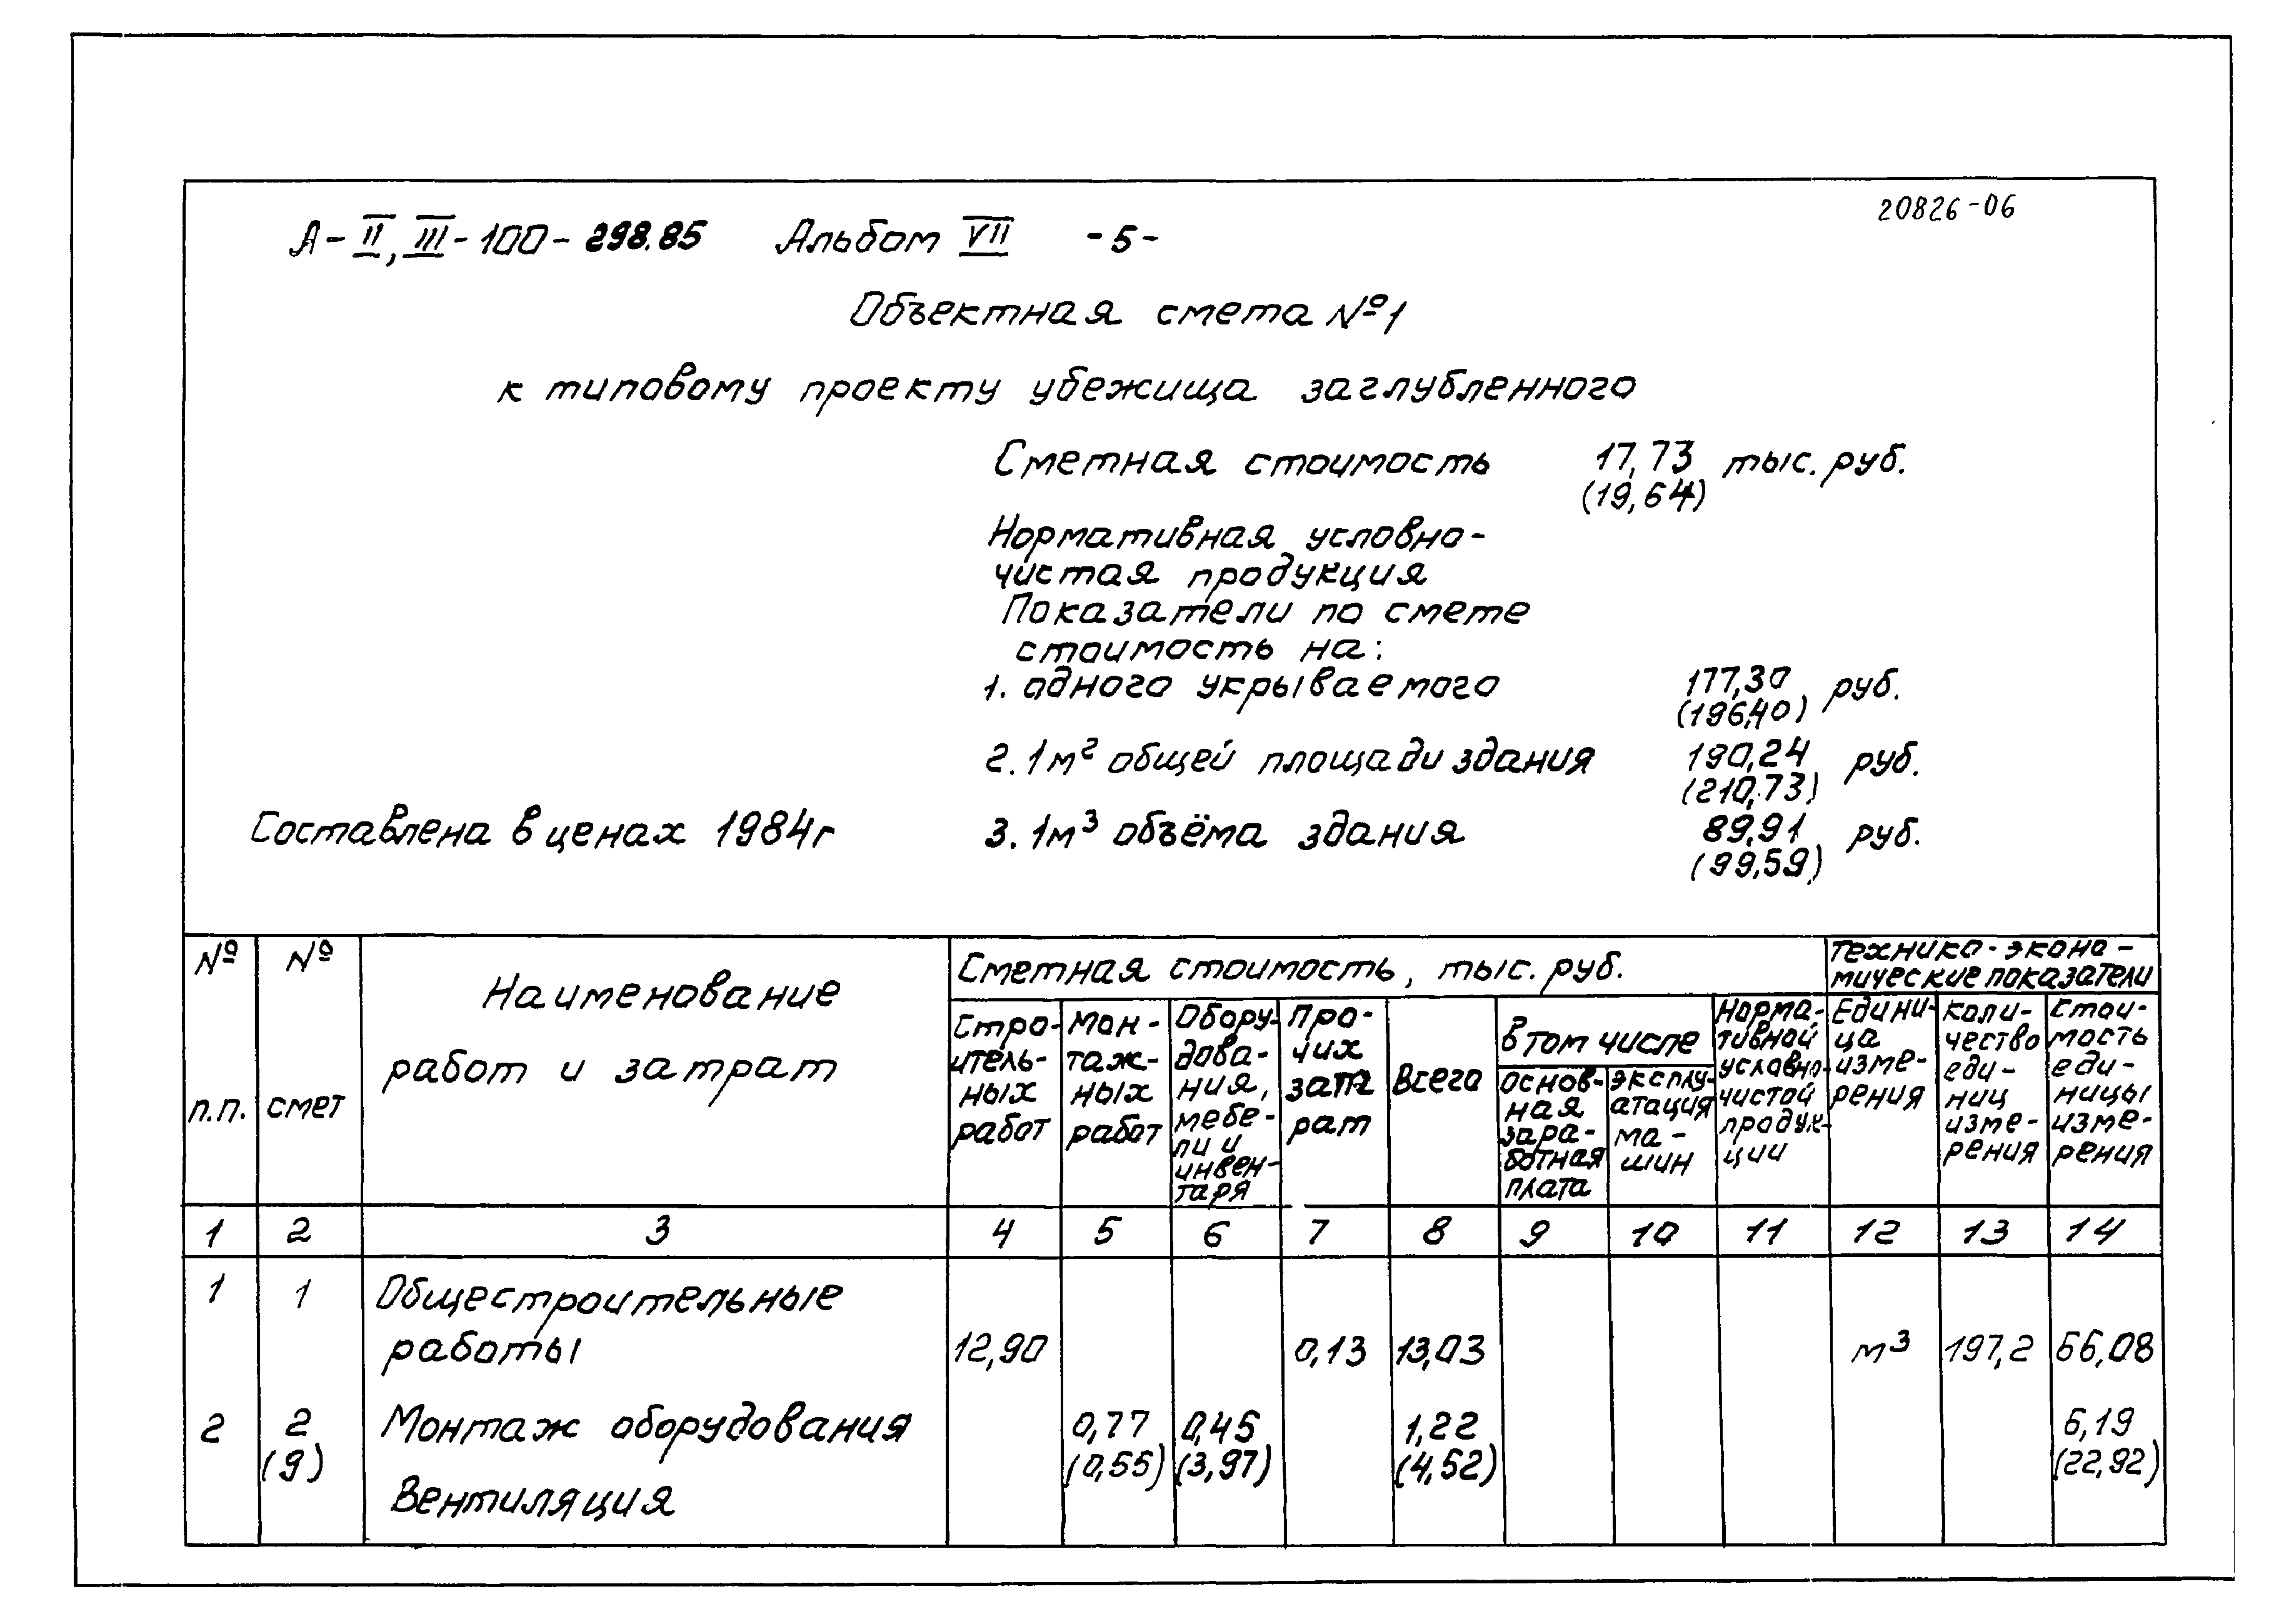 20826-06
А-II, III-100-298.85 Альбом VII -5-
Объектная смета №1
к типовому проекту убежища заглубленного
Сметная стоимость 17,73 тыс. руб.
(19,64)
Нормативная условно-
чистая продукция
Показатели по смете
стоимость на:
1. одного укрываемого 177,30 руб.
(196,40)
2. 1м² общей площади здания 190,24 руб.
(210,73)
Составлена в ценах 1984г 3. 1м³ объёма здания 89,91 руб.
(99,59)
№ п.п.
№ смет
Наименование
работ и затрат
Сметная стоимость, тыс. руб.
Стро-
итель-
ных
работ
Мон-
таж-
ных
работ
Обору-
дова-
ния,
мебе-
ли и
инвен-
таря
Про-
чих
зат
рат
Всего
В том числе
основ-
ная
зара-
ботная
плата
эксплу-
атация
ма-
шин
Норма-
тивной
условно-
чистой
продук-
ции
Технико-эконо-
мические показатели
Едини-
ца
изме-
рения
Коли-
чество
еди-
ниц
изме-
рения
Стои-
мость
еди-
ницы
изме-
рения
1 2 3 4 5 6 7 8 9 10 11 12 13 14
1 1 Общестроительные
работы 12,90 0,13 13,03 м³ 197,2 66,08
2 2 Монтаж оборудования 0,77 0,45 1,22 6,19
(9) (0,55) (3,97) (4,52) (22,92)
Вентиляция